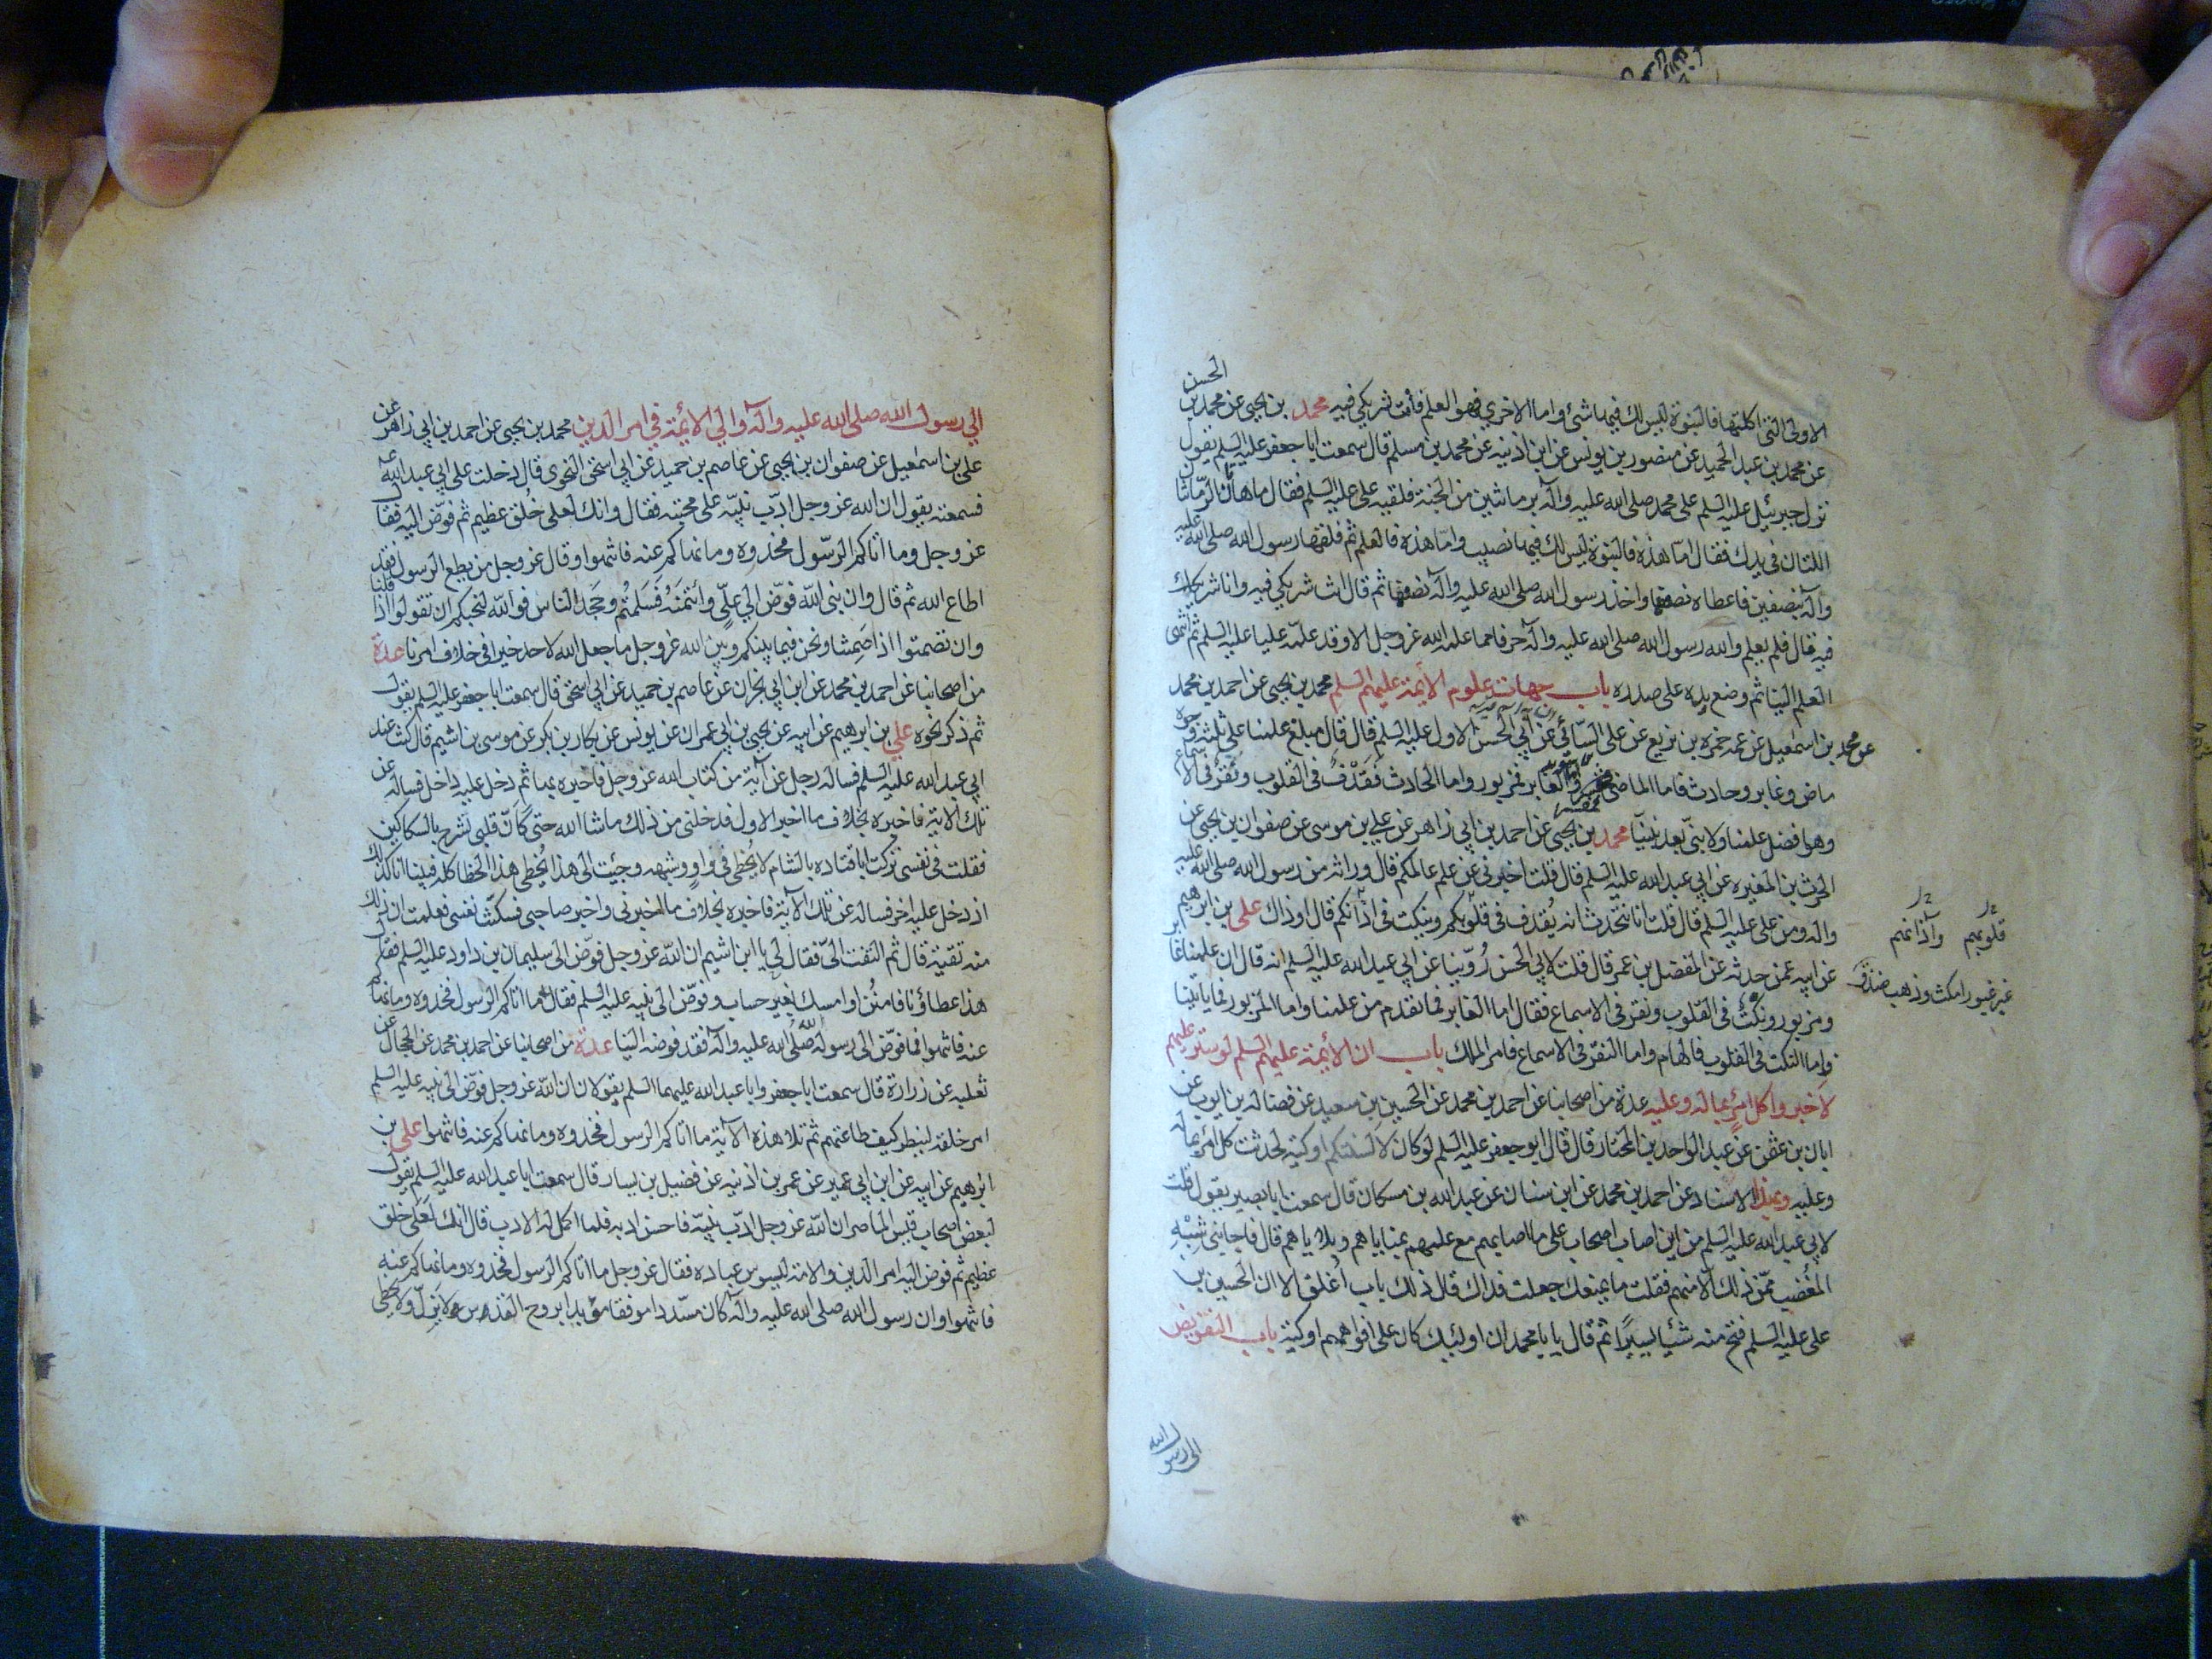 الحسن
الاولى التى اكلتها فالنبوة ليس لك فيها شئ واما الاخرى فهو العلم فأنت شريكى فيه محمد بن يحيى عن محمد بن
عن محمد بن عبد الحميد عن منصور بن يونس عن ابن اذينه عن محمد بن مسلم قال سمعت ابا جعفر عليه السلم يقول
نزل جبرئيل عليه السلم على محمد صلى الله عليه وآله برمانتين من الجنة فلقيه على عليه السلم فقال ما هاتان الرمانتا
اللتان فى يدك فقال امّا هذه فالنبوة ليس لك فيها نصيب وامّا هذه فالعلم ثم فلقها رسول الله صلى الله عليه
وآله بنصفين فاعطاه نصفها واخذ رسول الله صلى الله عليه وآله نصفها ثم قال انت شريكى فيه وانا شريكك
فيه قال فلم يعلم والله رسول الله صلى الله عليه وآله حرفا مما علمه الله عز وجل الا وقد علمّه عليا عليه السلم ثم انتهى
العلم الينا ثم وضع يده على صدره باب جهات علوم الأئمة عليهم السلم محمد بن يحيى عن احمد بن محمد
عن محمد بن اسمعيل عن عمه حمزه بن بزيع عن على السّائي عن ابي الحسن الاول عليه السلم قال قال مبلغ علمنا على ثلثة وجوه
ماض وغابر وحادث فاما الماضى فمفسر واما الغابر فمزبور واما الحادث فقذف فى القلوب ونقر فى الاسماع
وهو افضل علمنا ولا نبىّ بعد نبيّنا محمد بن يحيى عن احمد بن ابي زاهر عن علي بن موسى عن صفوان بن يحيى عن
الحرث بن المغيره عن ابي عبد الله عليه السلم قال قلت اخبرنى عن علم عالمكم قال وراثه من رسول الله صلى الله عليه
وآله ومن على عليه السلم قال قلت انا نتحدث انه يُقذف فى قلوبكم وينكت فى آذانكم قال او ذاك على بن ابرهيم
عن ابيه عمن حدثه عن المفضل بن عمر قال قلت لابي الحسن رُوّينا عن ابي عبد الله عليه السلم انه قال ان علمنا غابر
ومزبور ونكتٌ فى القلوب ونقر فى الاسماع فقال اما الغابر فما تقدم من علمنا واما المزبور فما ياتينا
واما النكت فى القلوب فالهام واما النقر فى الاسماع فامر الملك باب ان الأئمة عليهم السلم لو ستر عليهم
لاخبروا كل امرئ بما له وعليه عدة من اصحابنا عن احمد بن محمد عن الحسين بن سعيد عن فضاله بن ايوب عن
ابان بن عثمن عن عبد الواحد بن المختار قال قال ابو جعفر عليه السلم لو كان لالسنتكم اوكية لحدثت كل امرئ بما له
وعليه وبهذا الاسناد عن احمد بن محمد عن ابن سنان عن عبد الله بن مسكان قال سمعت ابا بصير يقول قلت
لابي عبد الله عليه السلم من اين اصاب اصحاب على ما اصابهم مع علمهم بمناياهم وبلاياهم قال فاجابنى شِبْهَ
المُغْضَب ممّن ذلك الا منهم فقلت ما يمنعك جعلت فداك قال ذلك باب أُغلق الا ان الحسين بن
على عليه السلم فتح منه شيأ يسيرًا ثم قال يا با محمد ان اولئك كان على افواههم اوكية باب التفويض
قلوبهم وآذانهم
الى رسول الله
الى رسول الله صلى الله عليه وآله والى الأئمة فى امر الدين محمد بن يحيى عن احمد بن ابي زاهر عن
على بن اسمعيل عن صفوان بن يحيى عن عاصم بن حميد عن ابي اسحق النحوى قال دخلت على ابي عبد الله
فسمعته يقول ان الله عز وجل ادّب نبيّه على محبته فقال وانك لعلى خُلُق عظيم ثم فوّض اليه فقال
عز وجل وما اتاكم الرّسول فخذوه وما نهاكم عنه فانتهوا وقال عز وجل من يطع الرسول فقد
اطاع الله ثم قال وان نبى الله فوّض الى علىٍّ وائتمنه فسلمتُم وجحد الناس فوالله لنحبكم ان تقولوا اذا قلنا
وان تصمتوا اذا صَمتنا ونحن فيما بينكم وبين الله عز وجل ما جعل الله لاحد خيرا فى خلاف امرنا عدة
من اصحابنا عن احمد بن محمد عن ابن ابي نجران عن عاصم بن حميد عن ابي اسحق قال سمعت ابا جعفر عليه السلم يقول
ثم ذكر نحوه علي بن ابرهيم عن ابيه عن يحيى بن ابي عمران عن يونس عن بكار بن بكر عن موسى بن اشيم قال كنت عند
ابي عبد الله عليه السلم فساله رجل عن آية من كتاب الله عز وجل فاخبره بها ثم دخل عليه داخل فساله عن
تلك الآية فاخبره بخلاف ما اخبر الاول فدخلنى من ذلك ما شا الله حتى كانّ قلبى يشرح بالسكاكين
فقلت فى نفسى تركت ابا قتاده بالشام لا يُخطى فى واوٍ وشبهه وجئت الى هذا يُخطى هذا الخطا كله فبينا انا كذلك
اذ دخل عليه اخر فساله عن تلك الآية فاخبره بخلاف ما اخبرنى واخبر صاحبى فسكنت نفسى فعلمت ان ذلك
منه تقية قال ثم التفت الىّ فقال لى يا ابن اشيم ان الله عز وجل فوّض الى سليمان بن داود عليه السلم فقال
هذا عطاؤنا فامنُن او امسك بغير حساب وفوّض الى نبيه عليه السلم فقال ما اتاكم الرسول فخذوه وما نهاكم
عنه فانتهوا فما فوّض الى رسوله صلى الله عليه وآله فقد فوضه الينا عدة من اصحابنا عن احمد بن محمد عن الحجال عن
ثعلبه عن زرارة قال سمعت ابا جعفر وابا عبد الله عليهما السلم يقولان ان الله عز وجل فوّض الى نبيه عليه السلم
امر خلقه لينظر كيف طاعتهم ثم تلا هذه الآية ما اتاكم الرسول فخذوه وما نهاكم عنه فانتهوا على بن
ابرهيم عن ابيه عن ابن ابي عمير عن عمر بن اذينه عن فضيل بن يسار قال سمعت ابا عبد الله عليه السلم يقول
لبعض اصحاب قيس الماصر ان الله عز وجل ادّب نبيّه فاحسن ادبه فلما اكمل له الادب قال انك لعلى خلق
عظيم ثم فوض اليه امر الدين والامة ليسوس عباده فقال عز وجل ما اتاكم الرسول فخذوه وما نهاكم عنه
فانتهوا وان رسول الله صلى الله عليه وآله كان مسّددا موفقا مؤيدا بروح القدس لا يزلّ ولا يخطى